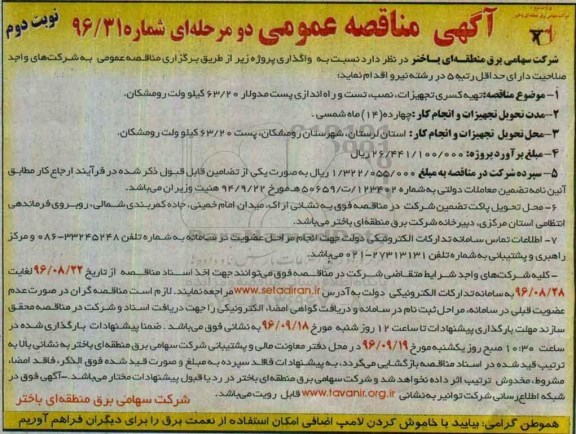 آگهی مناقصه عمومی دو مرحله‌ای شماره ۹۶/۳۱
نوبت دوم
شرکت سهامی برق منطقه‌ای باختر در نظر دارد نسبت به واگذاری پروژه زیر از طریق برگزاری مناقصه عمومی به شرکت‌های واجد
صلاحیت دارای حداقل رتبه ۵ در رشته نیرو اقدام نماید؛
۱- موضوع مناقصه: تهیه کسری تجهیزات، نصب، تست و راه‌اندازی پست مدولار ۶۳/۲۰ کیلو ولت رومشکان.
۲- مدت تحویل تجهیزات و انجام کار: چهارده (۱۴) ماه شمسی.
۳- محل تحویل تجهیزات و انجام کار: استان لرستان، شهرستان رومشکان، پست ۶۳/۲۰ کیلو ولت رومشکان.
۴- مبلغ برآورد پروژه: ۲۶/۴۴۱/۱۰۰/۰۰۰ ریال
۵- سپرده شرکت در مناقصه به مبلغ ۱/۳۲۲/۰۵۵/۰۰۰ ریال به صورت یکی از تضامین قابل قبول ذکر شده در فرآیند ارجاع کار مطابق
آئین نامه تضمین معاملات دولتی به شماره ۱۲۳۴۰۲/ت۵۰۶۵۹هـ مورخ ۹۴/۹/۲۲ هئیت وزیران می‌باشد.
۶- محل تحویل پاکت تضمین شرکت در مناقصه فوق به نشانی اراک، میدان امام خمینی، جاده کمربندی شمالی، روبروی فرماندهی
انتظامی استان مرکزی، دبیرخانه شرکت برق منطقه‌ای باختر می‌باشد.
۷- اطلاعات تماس سامانه تدارکات الکترونیکی دولت جهت انجام مراحل عضویت در سامانه به شماره تلفن ۳۳۲۴۵۲۴۸-۰۸۶ و مرکز
راهبری و پشتیبانی به شماره تلفن ۲۷۳۱۳۱۳۱-۰۲۱ می‌باشد.
- کلیه شرکت‌های واجد شرایط متقاضی شرکت در مناقصه فوق می‌توانند جهت اخذ اسناد مناقصه از تاریخ ۹۶/۰۸/۲۲ لغایت
۹۶/۰۸/۲۸ به سامانه تدارکات الکترونیکی دولت به آدرس www.setadiran.ir مراجعه نمایند. لازم است مناقصه گران در صورت عدم
عضویت قبلی در سامانه، مراحل ثبت نام در سامانه و دریافت گواهی امضاء الکترونیکی را جهت دریافت اسناد و شرکت در مناقصه محقق
سازند مهلت بارگذاری پیشنهادات تا ساعت ۱۲ روز شنبه مورخ ۹۶/۰۹/۱۸ به نشانی فوق می‌باشد. ضمنا پیشنهادات بارگذاری شده در
ساعت ۱۰:۳۰ صبح روز یکشنبه مورخ ۹۶/۰۹/۱۹ در محل دفتر معاونت مالی و پشتیبانی شرکت سهامی برق منطقه‌ای باختر به نشانی بالا به
ترتیب قید شده در اسناد مناقصه بازگشایی می‌گردد. به پیشنهادات فاقد سپرده به مبلغ و صورت قید شده فوق الذکر، فاقد امضاء،
مشروط، مخدوش ترتیب اثر داده نخواهد شد و شرکت سهامی برق منطقه‌ای باختر در رد یا قبول پیشنهادات مختار می‌باشد. - آگهی فوق در
شبکه اطلاع رسانی شرکت توانیر به نشانی www.tavanir.org.ir قابل رویت می‌باشد.
شرکت سهامی برق منطقه‌ای باختر
هموطن گرامی: بیایید با خاموش کردن لامپ اضافی امکان استفاده از نعمت برق را برای دیگران فراهم آوریم